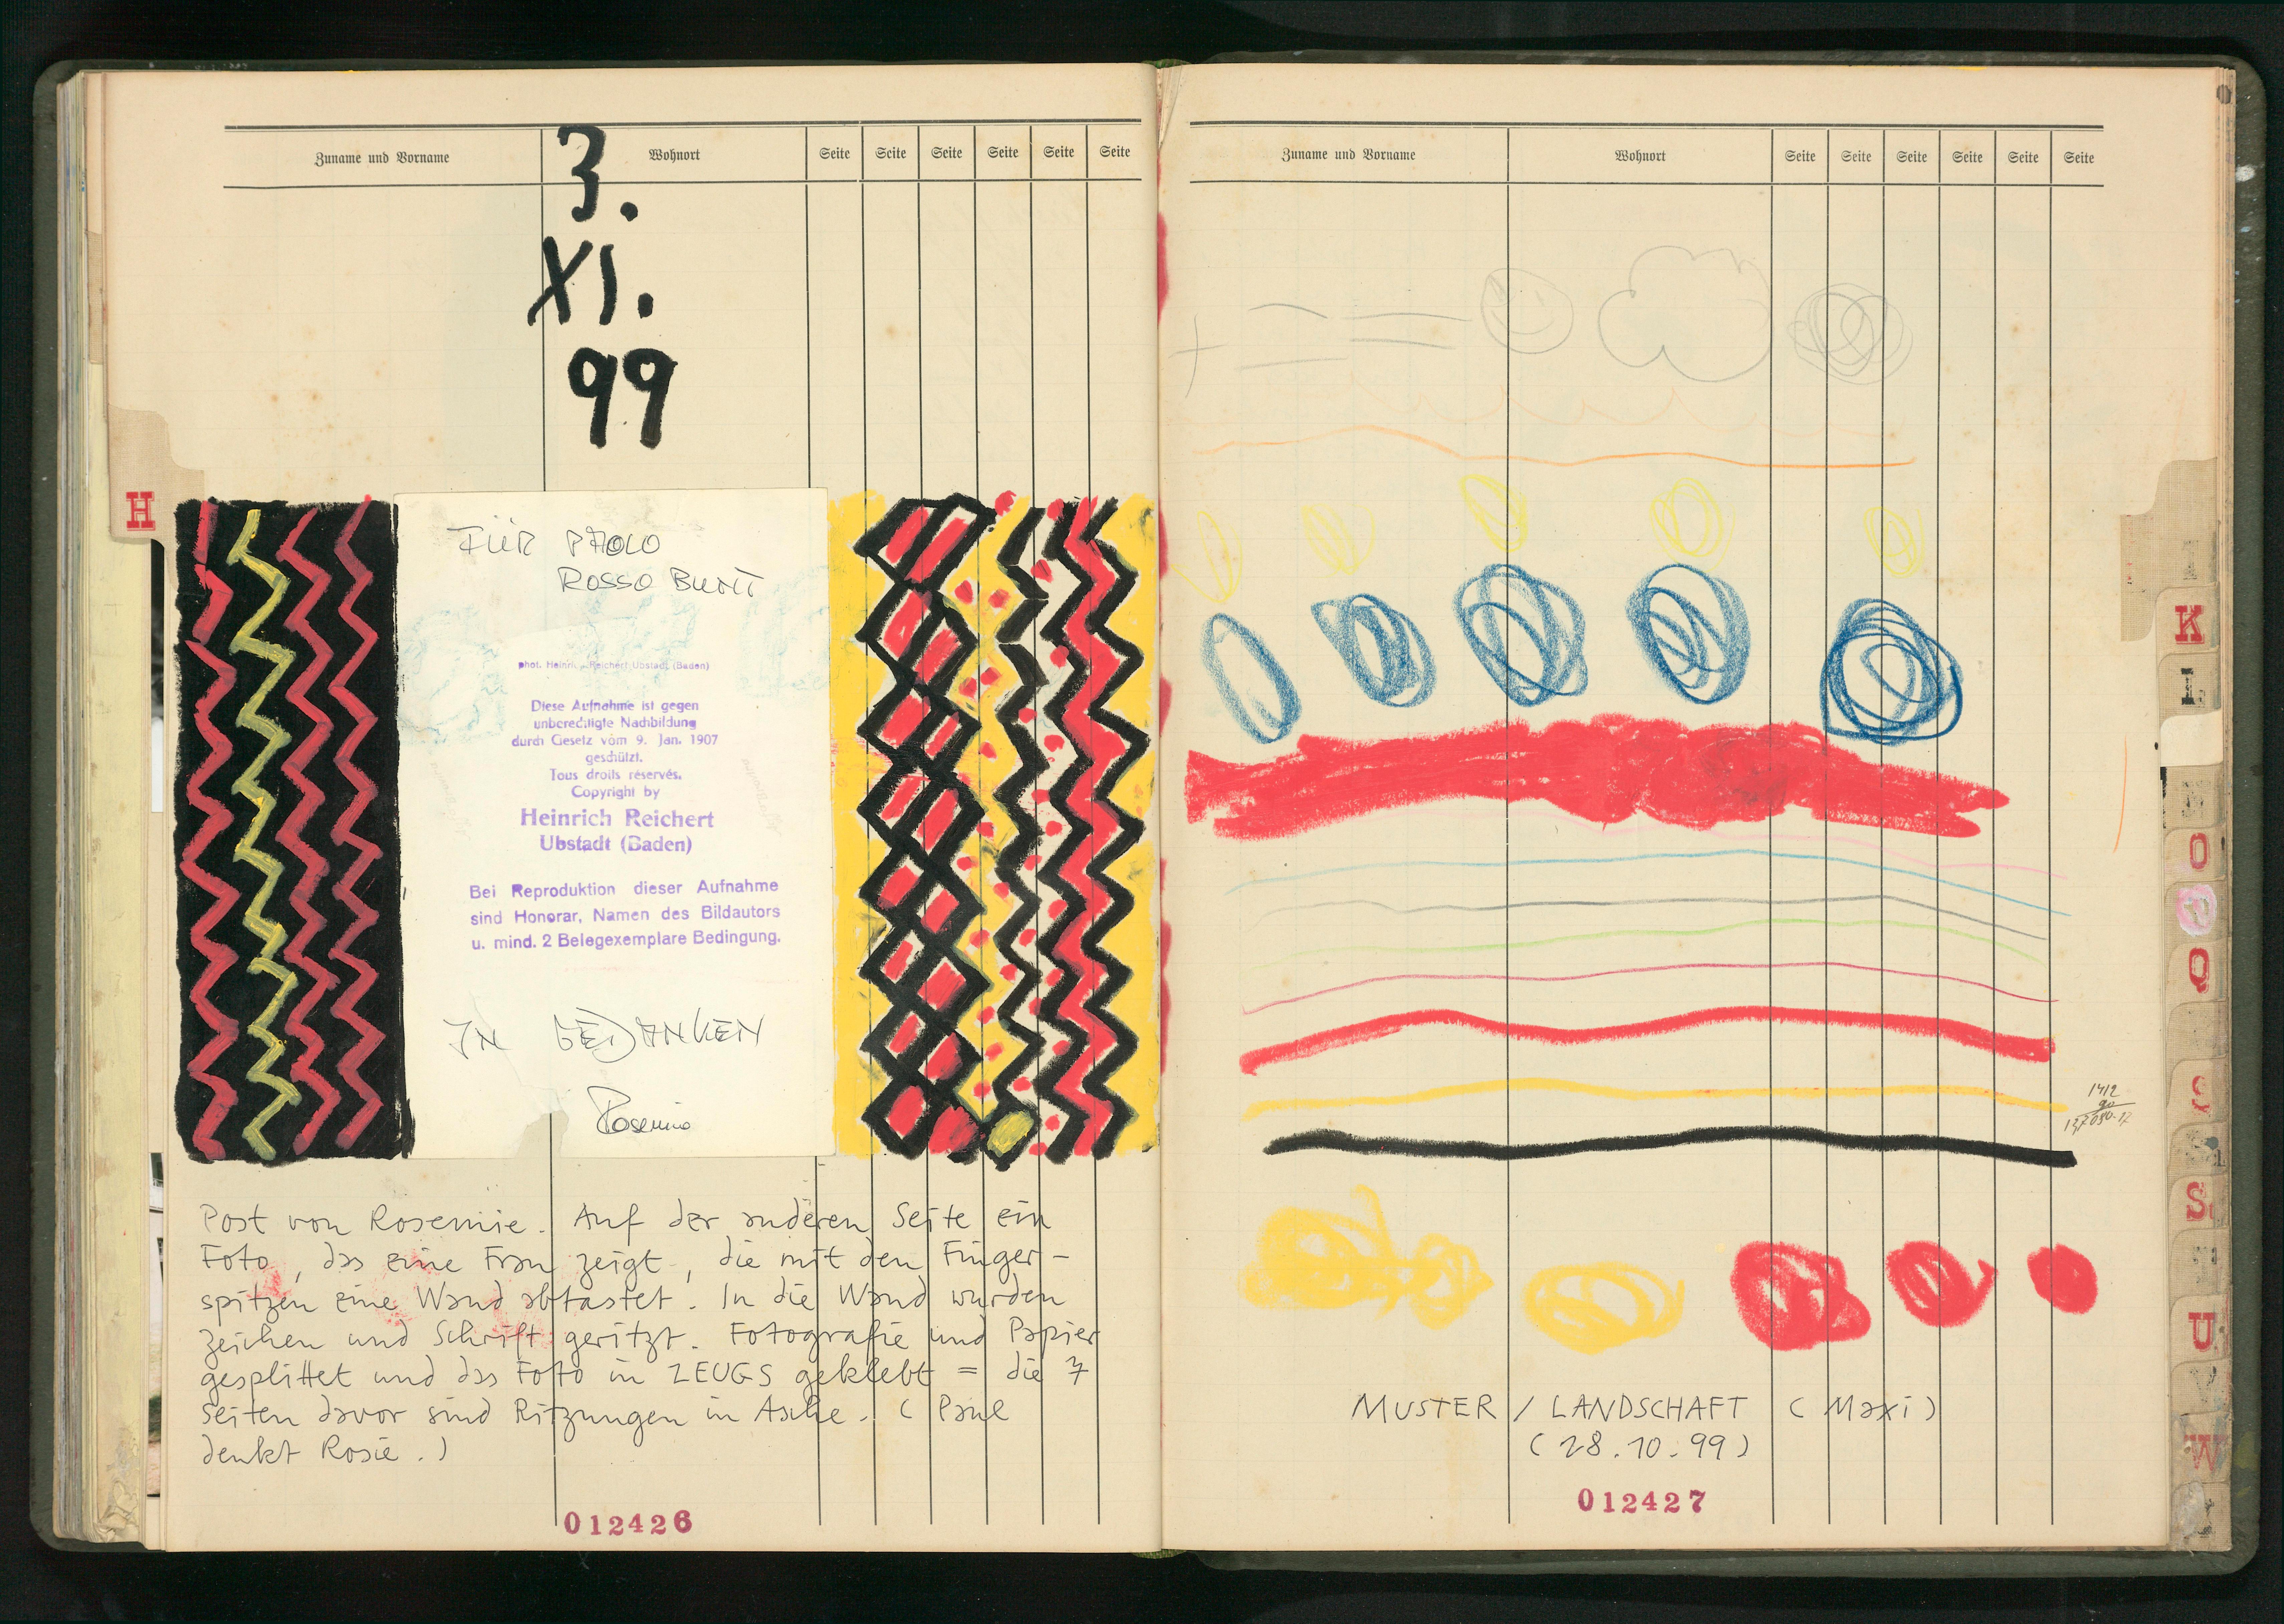 Zuname und Vorname Wohnort Seite Seite Seite Seite Seite Seite
3.
XI.
99
H
FÜR PAOLO
ROSSO BUNT
phot. Heinr. Reichert Ubstadt (Baden)
Diese Aufnahme ist gegen
unberechtigte Nachbildung
durch Gesetz vom 9. Jan. 1907
geschützt.
Tous droits réservés.
Copyright by
Heinrich Reichert
Ubstadt (Baden)
Bei Reproduktion dieser Aufnahme
sind Honorar, Namen des Bildautors
u. mind. 2 Belegexemplare Bedingung.
IN GEDANKEN
Post von Rosemie. Auf der anderen Seite ein
Foto, das eine Frau zeigt, die mit den Finger-
spitzen eine Wand abtastet. In die Wand wurden
Zeichen und Schrift geritzt. Fotografie und Papier
gesplittet und das Foto in ZEUGS geklebt = die 7
Seiten davor sind Ritzungen in Asche. (Paul
denkt Rosie.)
012426
Zuname und Vorname Wohnort Seite Seite Seite Seite Seite Seite
1412
90
MUSTER / LANDSCHAFT (Maxi)
(28.10.99)
012427
K
L
O
Q
S
U
W